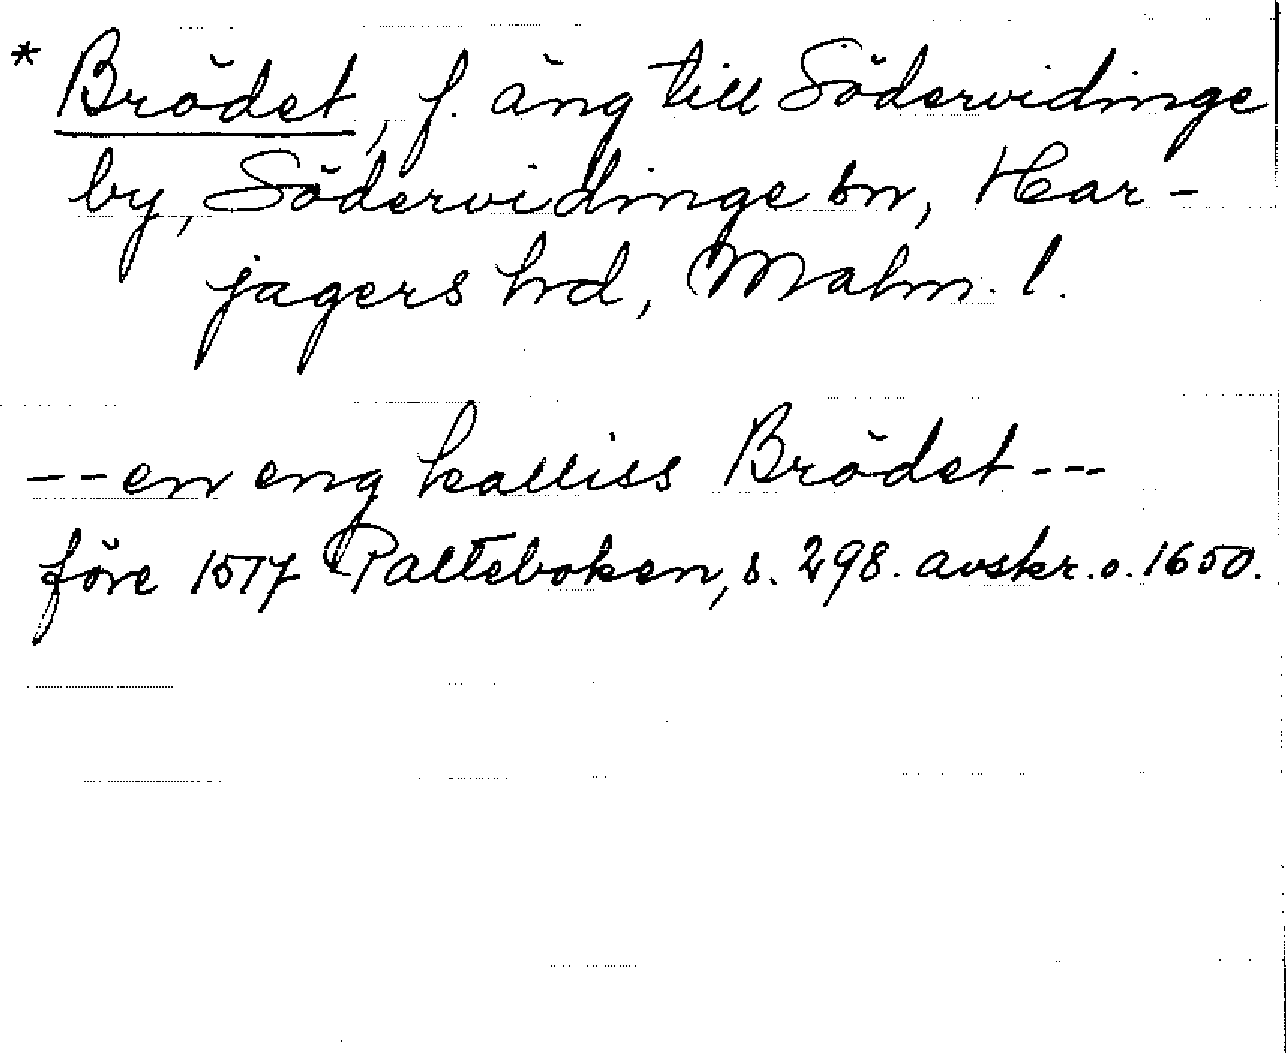 * Brödet, f. äng till Södervidinge
by, Södervidinge sn, Har-
jagers hrd, Malm. l.
-- en eng kalliss Brödet ---
före 1517 Palteboken, s. 298. avskr. o. 1650.